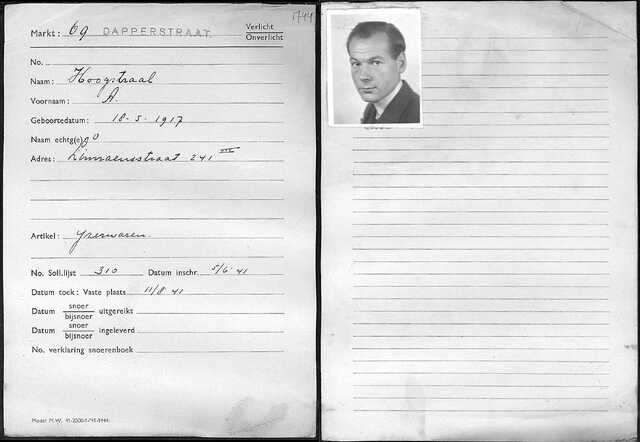 1744
Markt: 69 DAPPERSTRAAT. Verlicht
Onverlicht
No.
Naam: Hoogstraal
Voornaam: A.
Geboortedatum: 18-5-1917
Naam echtg(e)
Adres: Linnaeusstraat 241 III
Artikel: Yzerwaren.
No. Soll.lijst 310 Datum inschr. 5/6 41
Datum toek: Vaste plaats 11/8 41
Datum snoer/bijsnoer uitgereikt
Datum snoer/bijsnoer ingeleverd
No. verklaring snoerenboek
Model M.W.